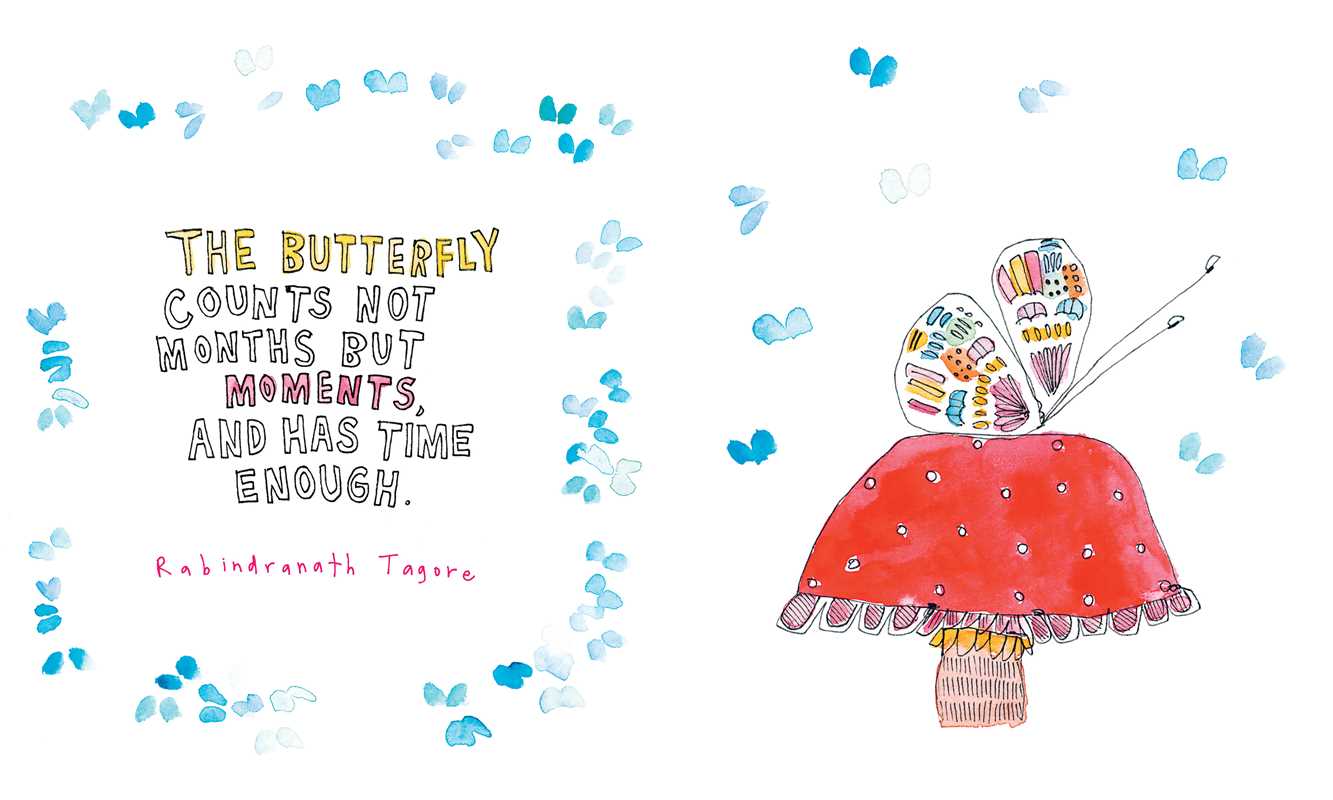 THE BUTTERFLY
COUNTS NOT
MONTHS BUT
MOMENTS,
AND HAS TIME
ENOUGH.
Rabindranath Tagore